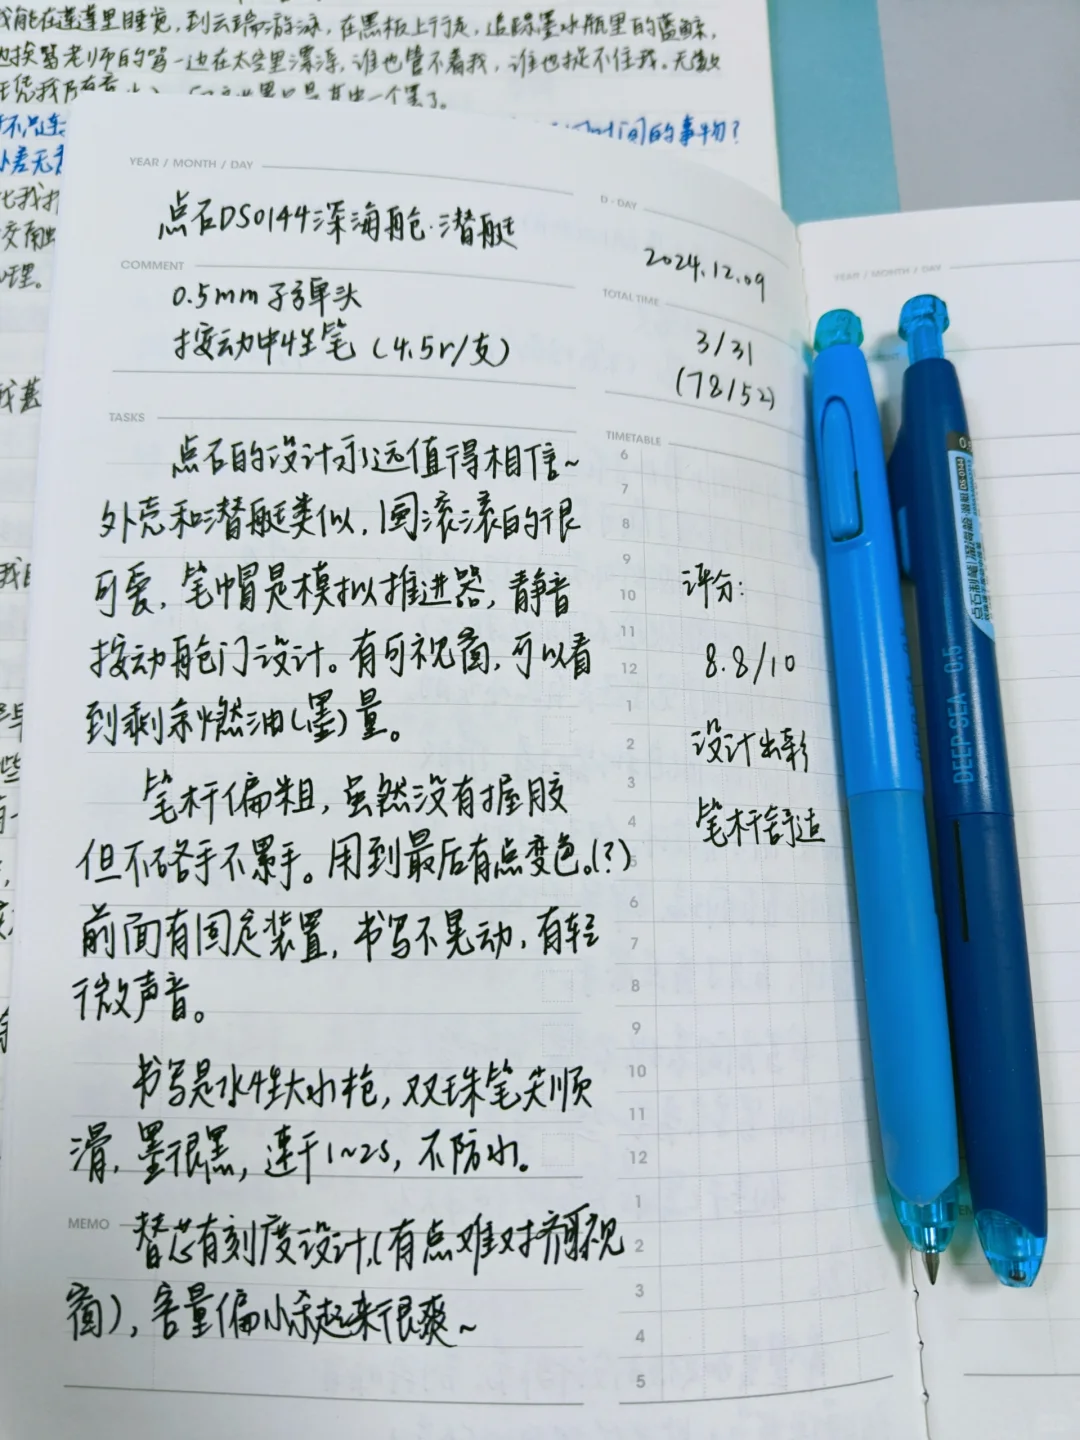 我能在莲蓬里睡觉，到云端游泳，在黑板上行走，追踪墨水瓶里的蓝鲸，
边挨骂老师的骂一边在太空里漂浮，谁也管不着我，谁也捉不住我。无数
一个罢了。
间的事物？
YEAR / MONTH / DAY
点石DS0144深海舱·潜艇
COMMENT
0.5mm 子弹头
按动中性笔（4.5r/支）
D-DAY
2024.12.09
TOTAL TIME
3/31
(78/52)
TASKS
点石的设计永远值得相信~
外壳和潜艇类似，圆滚滚的很
可爱，笔帽是模拟推进器，静音
按动舱门设计。有可视窗，可以看
到剩余燃油（墨）量。
笔杆偏粗，虽然没有握胶
但不硌手不累手。用到最后有点变色。(?)
前面有固定装置，书写不晃动，有轻
微声音。
书写是水性大水枪，双珠笔尖顺
滑，墨很黑，速干1~2s，不防水。
MEMO
替芯有刻度设计，（有点难对齐可视
窗），容量偏小杀起来很爽~
TIMETABLE
6
7
8
9
10
11
12
1
2
3
4
5
6
7
8
9
10
11
12
1
2
3
4
5
评分：
8.8/10
设计出彩
笔杆舒适
YEAR / MONTH / DAY
点石制笔|深海舱·潜艇
DEEP SEA 0.5